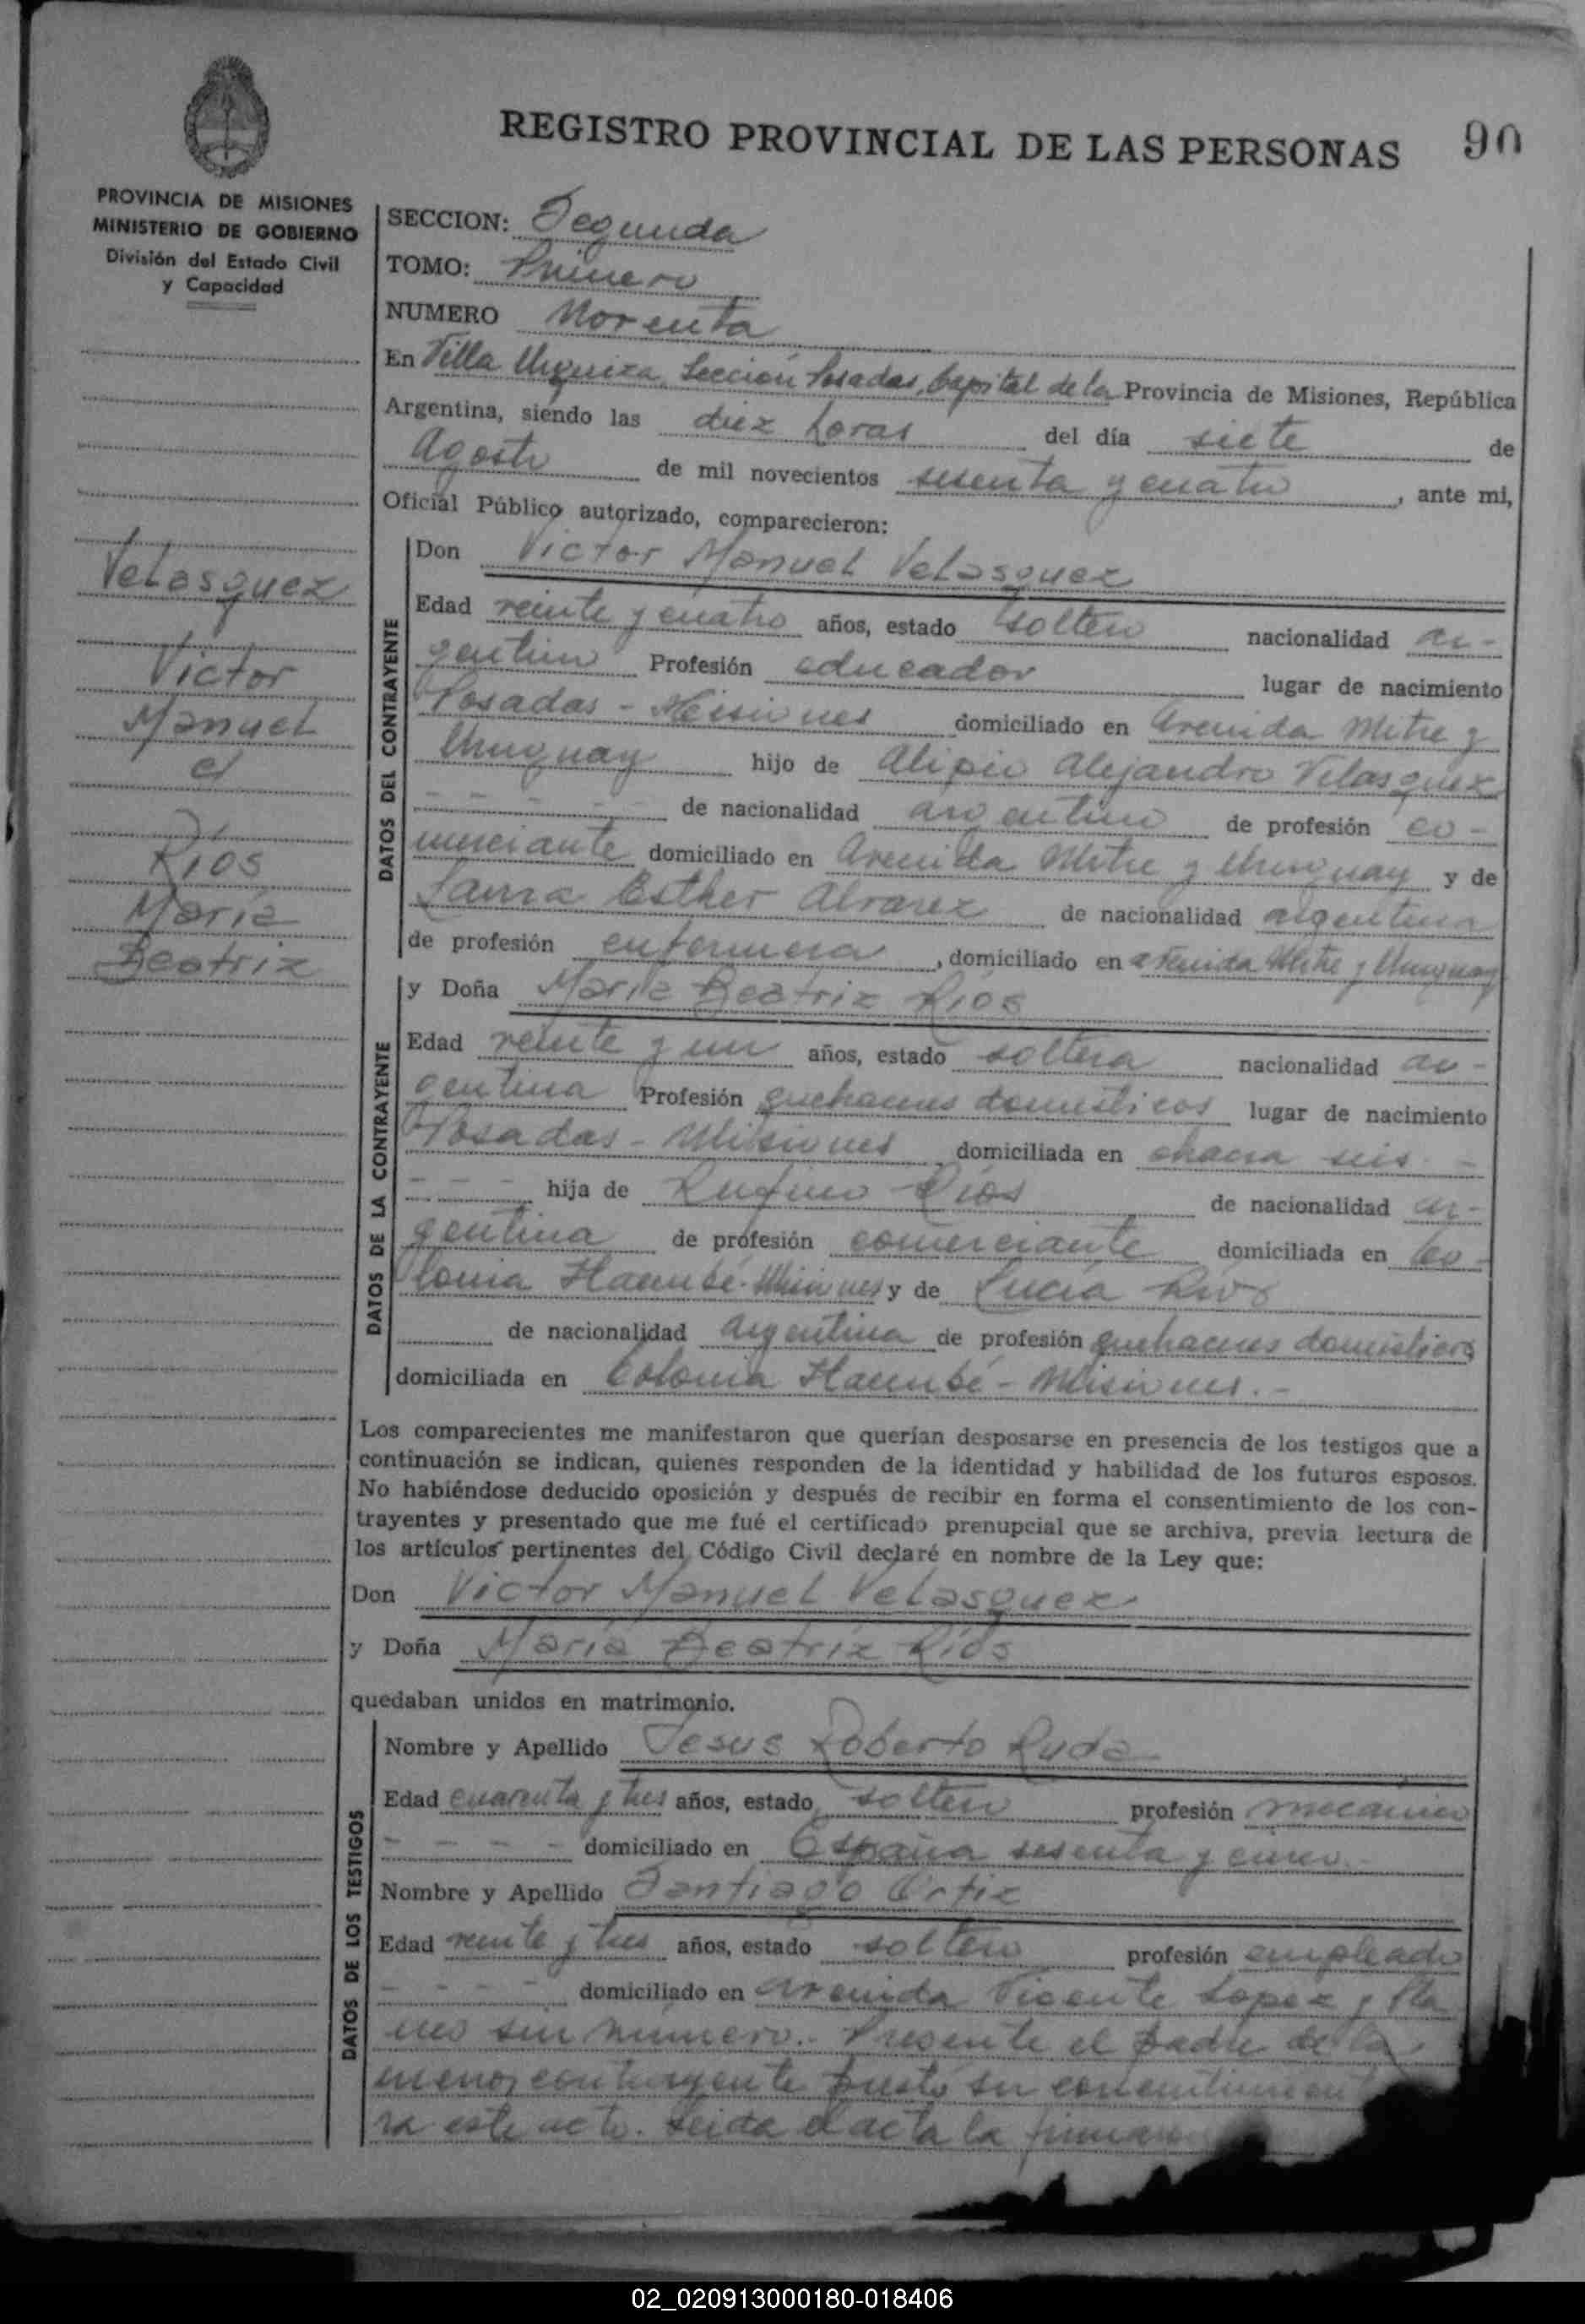 REGISTRO PROVINCIAL DE LAS PERSONAS 90
PROVINCIA DE MISIONES
MINISTERIO DE GOBIERNO
División del Estado Civil
y Capacidad
SECCION: Segunda
TOMO: Primero
NUMERO Noventa
En Villa Urquiza, Sección Posadas, Capital de la Provincia de Misiones, República
Argentina, siendo las diez horas del día siete de
Agosto de mil novecientos sesenta y cuatro, ante mi,
Oficial Público autorizado, comparecieron:
Velasquez
Victor
Manuel
c/
Rios
María
Beatriz
DATOS DEL CONTRAYENTE
Don Victor Manuel Velasquez
Edad veinte y cuatro años, estado soltero nacionalidad ar-
gentino Profesión educador lugar de nacimiento
Posadas - Misiones domiciliado en Avenida Mitre y
Uruguay hijo de Alipio Alejandro Velasquez
- - - - - de nacionalidad argentino de profesión co-
merciante domiciliado en Avenida Mitre y Uruguay y de
Laura Esther Alvarez de nacionalidad argentina
de profesión enfermera, domiciliado en avenida Mitre y Uruguay
DATOS DE LA CONTRAYENTE
y Doña María Beatriz Ríos
Edad veinte y un años, estado soltera nacionalidad ar-
gentina Profesión quehaceres domésticos lugar de nacimiento
Posadas - Misiones domiciliada en chacra seis -
- - - hija de Rufino Ríos de nacionalidad ar-
gentina de profesión comerciante domiciliada en Co-
lonia Itacuibé - Misiones y de Lucía Ríos
de nacionalidad argentina de profesión quehaceres domésticos
domiciliada en Colonia - Misiones.-
Los comparecientes me manifestaron que querían desposarse en presencia de los testigos que a
continuación se indican, quienes responden de la identidad y habilidad de los futuros esposos.
No habiéndose deducido oposición y después de recibir en forma el consentimiento de los con-
trayentes y presentado que me fué el certificado prenupcial que se archiva, previa lectura de
los artículos pertinentes del Código Civil declaré en nombre de la Ley que:
Don Victor Manuel Velasquez
y Doña María Beatriz Ríos
quedaban unidos en matrimonio.
DATOS DE LOS TESTIGOS
Nombre y Apellido Jesus Roberto Ruda
Edad cuarenta y tres años, estado soltero profesión mecánico
- - - - domiciliado en España sesenta y cinco.-
Nombre y Apellido Santiago Ortiz
Edad veinte y tres años, estado soltero profesión empleado
- - - - domiciliado en avenida Vicente Lopez y Pla
nes sin número.- Presente el padre de la
menor contrayente prestó su consentimient
ra este acto. Leida el acta la firmaron
02_020913000180-018406